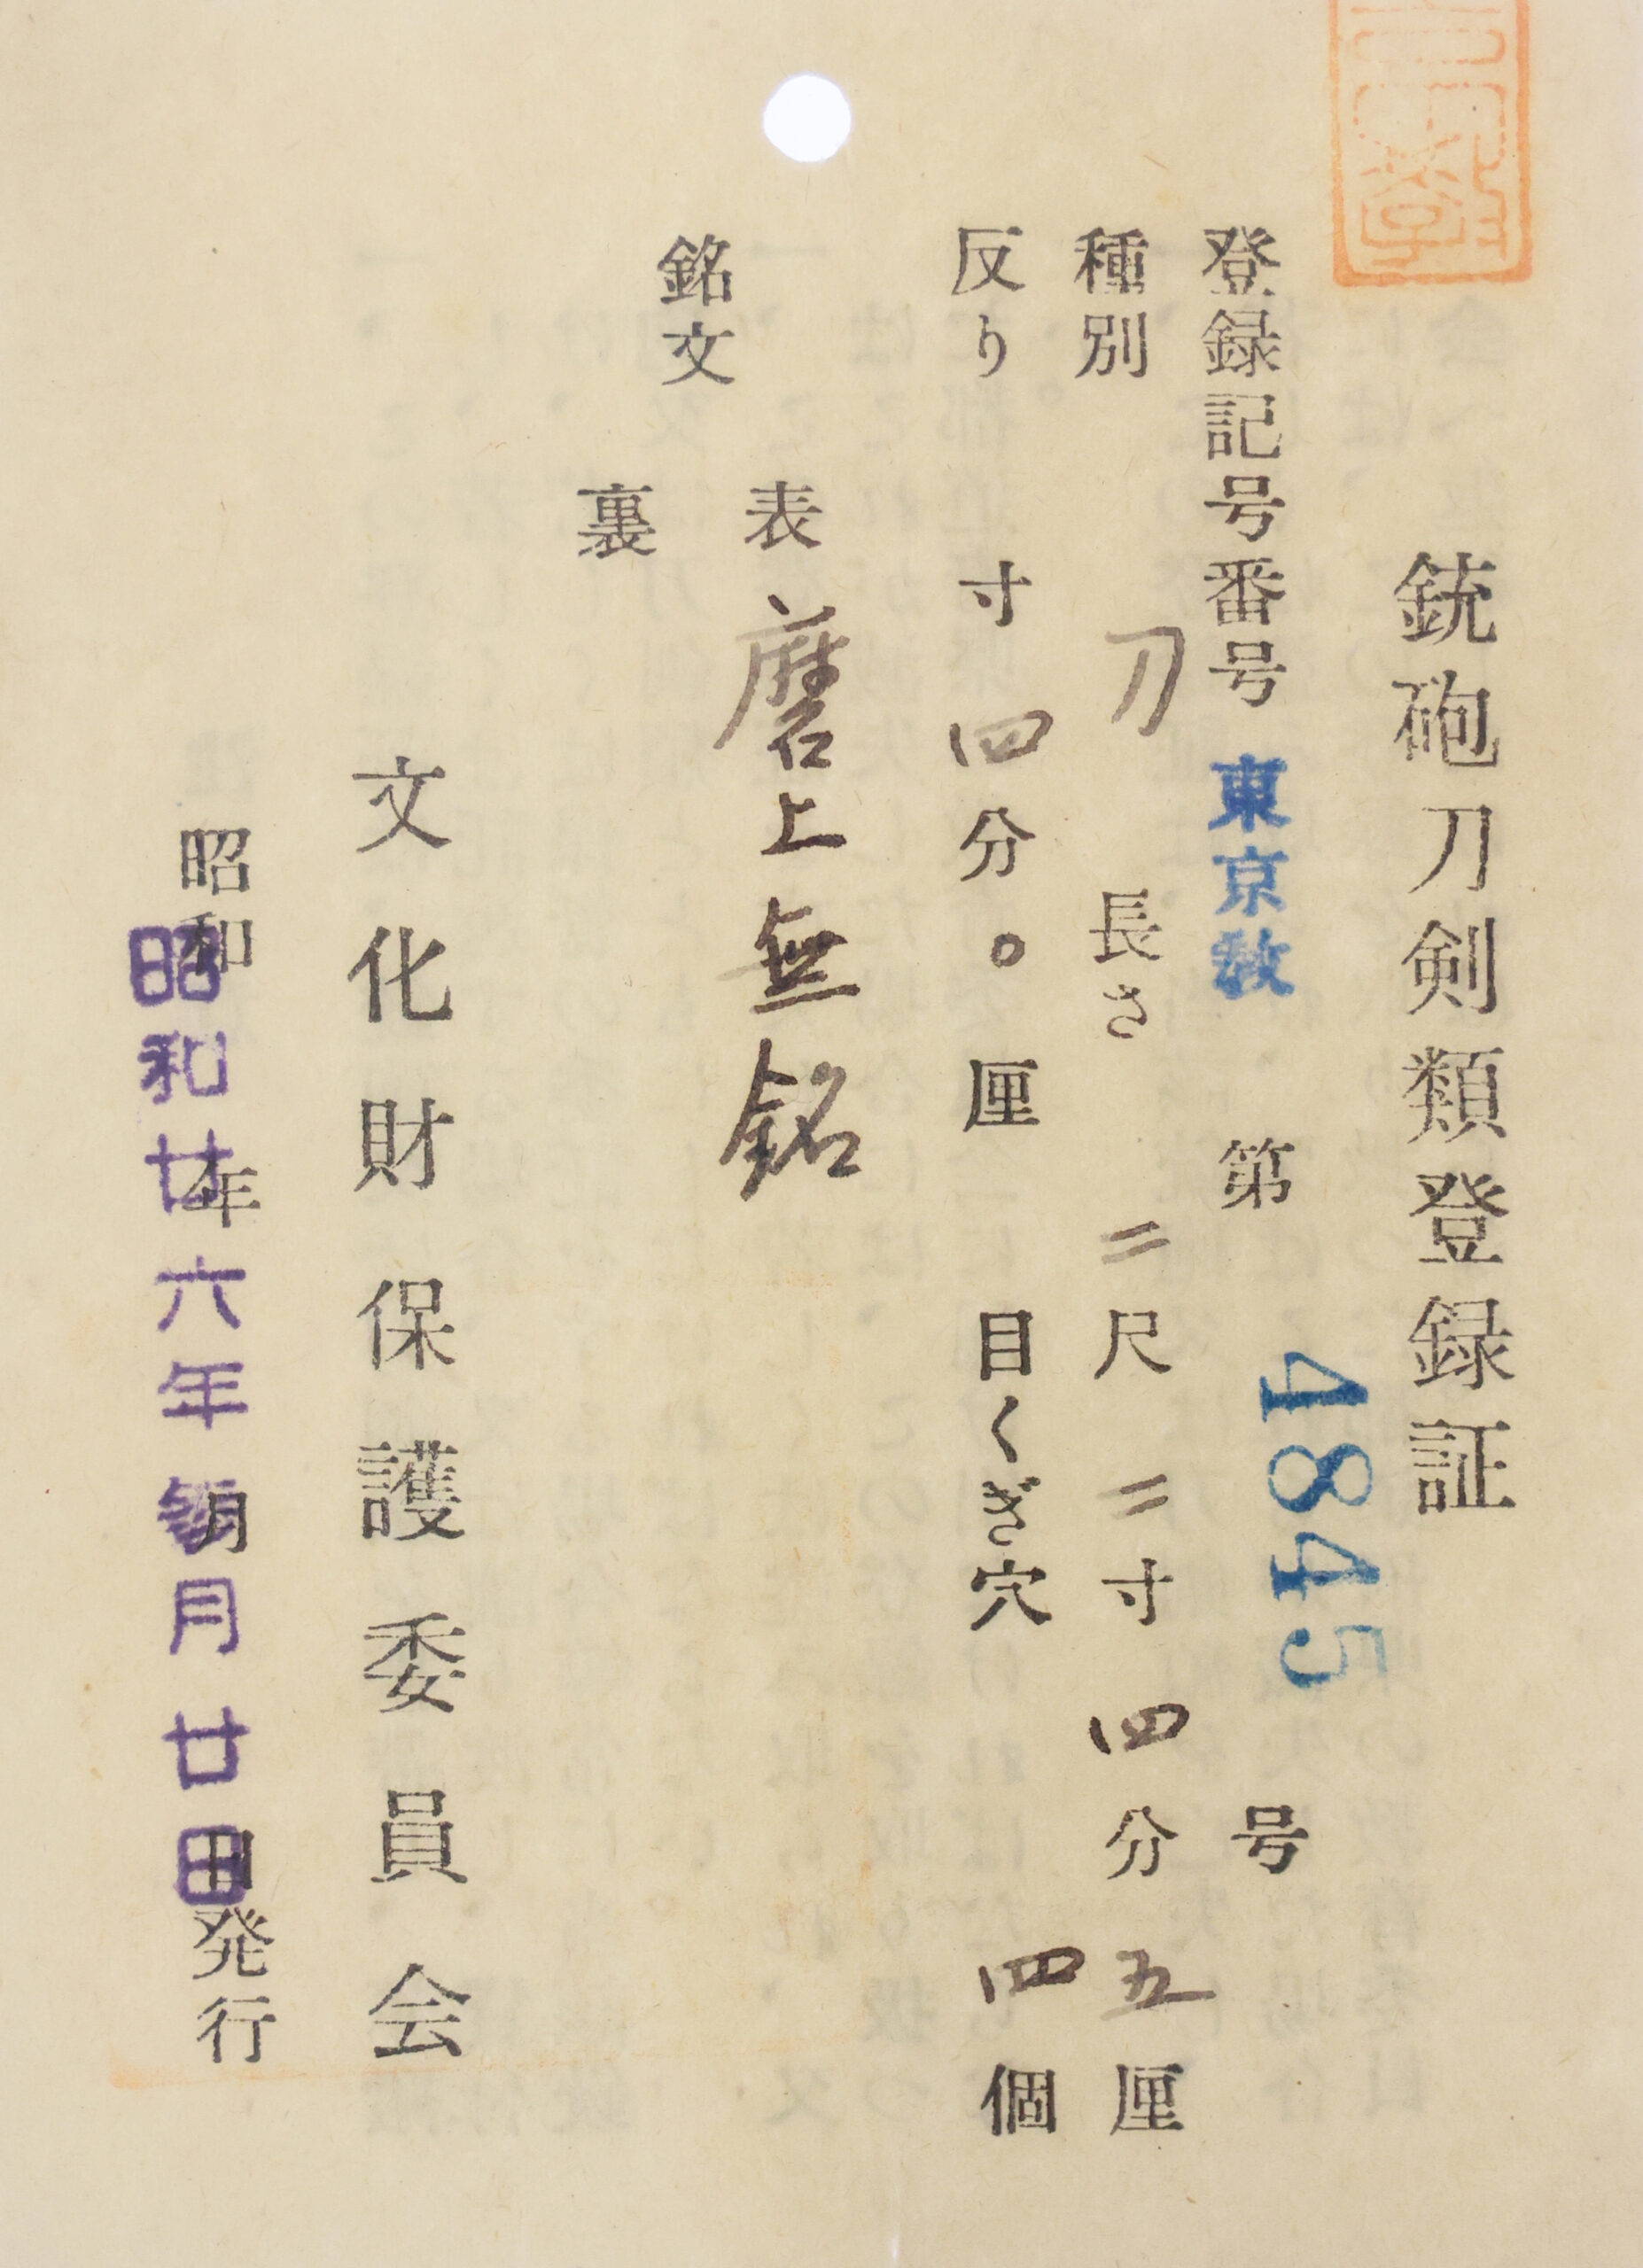 銃砲刀剣類登録証
登録記号番号 東京教 第 4845 号
種別 刀 長さ 二尺 二寸 四分 五厘
反り 寸 四分 。厘 目くぎ穴 四個
銘文
表 磨上無銘
裏
文化財保護委員会
昭和 年 月 日発行
昭和廿六年 月廿日